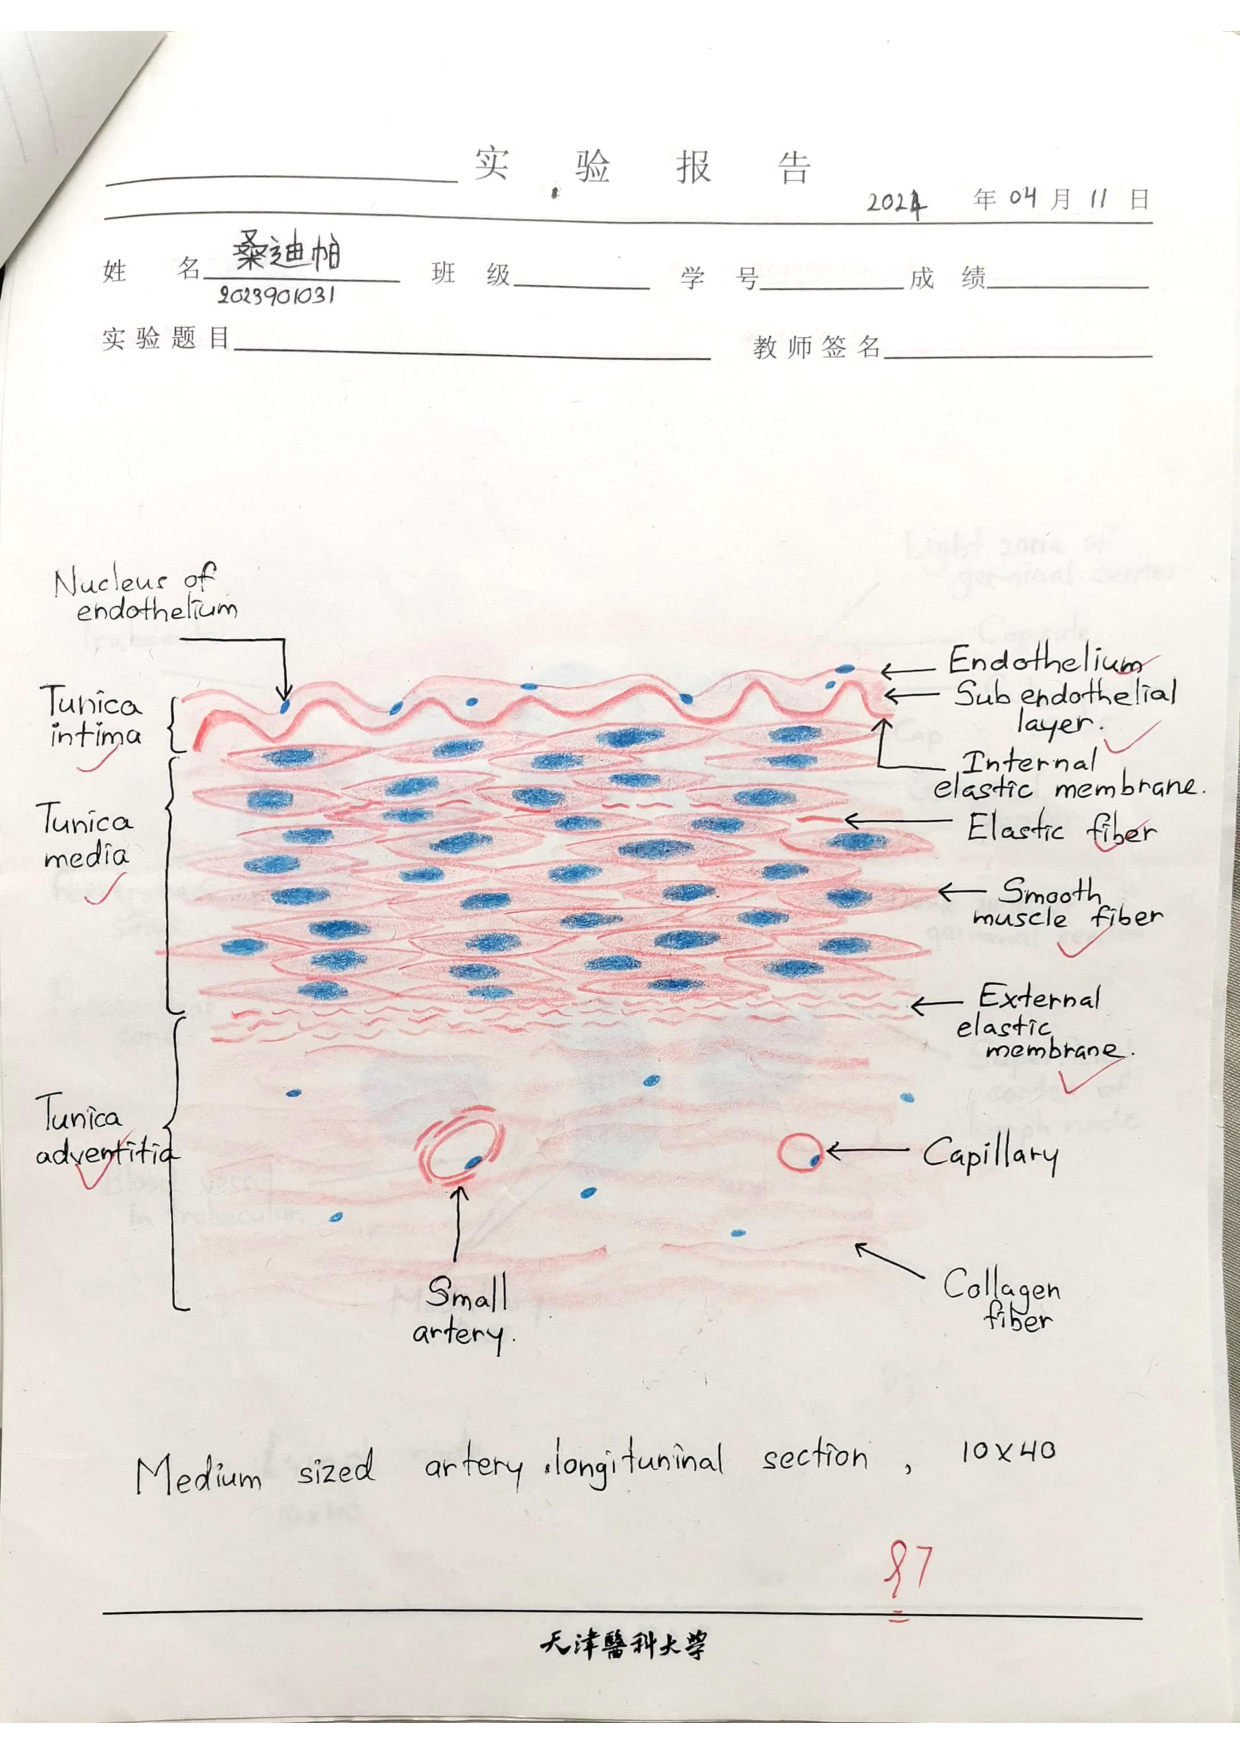 实验报告
2024年04月11日
姓名 桑迪帕 班级 学号 成绩
2023901031
实验题目 教师签名
Nucleus of
endothelium
Tunica
intima
Tunica
media
Tunica
adventitia
Endothelium
Sub endothelial
layer.
Internal
elastic membrane.
Elastic fiber
Smooth
muscle fiber
External
elastic
membrane.
Capillary
Collagen
fiber
Small
artery.
Medium sized artery .longituninal section , 10X40
97
天津醫科大学